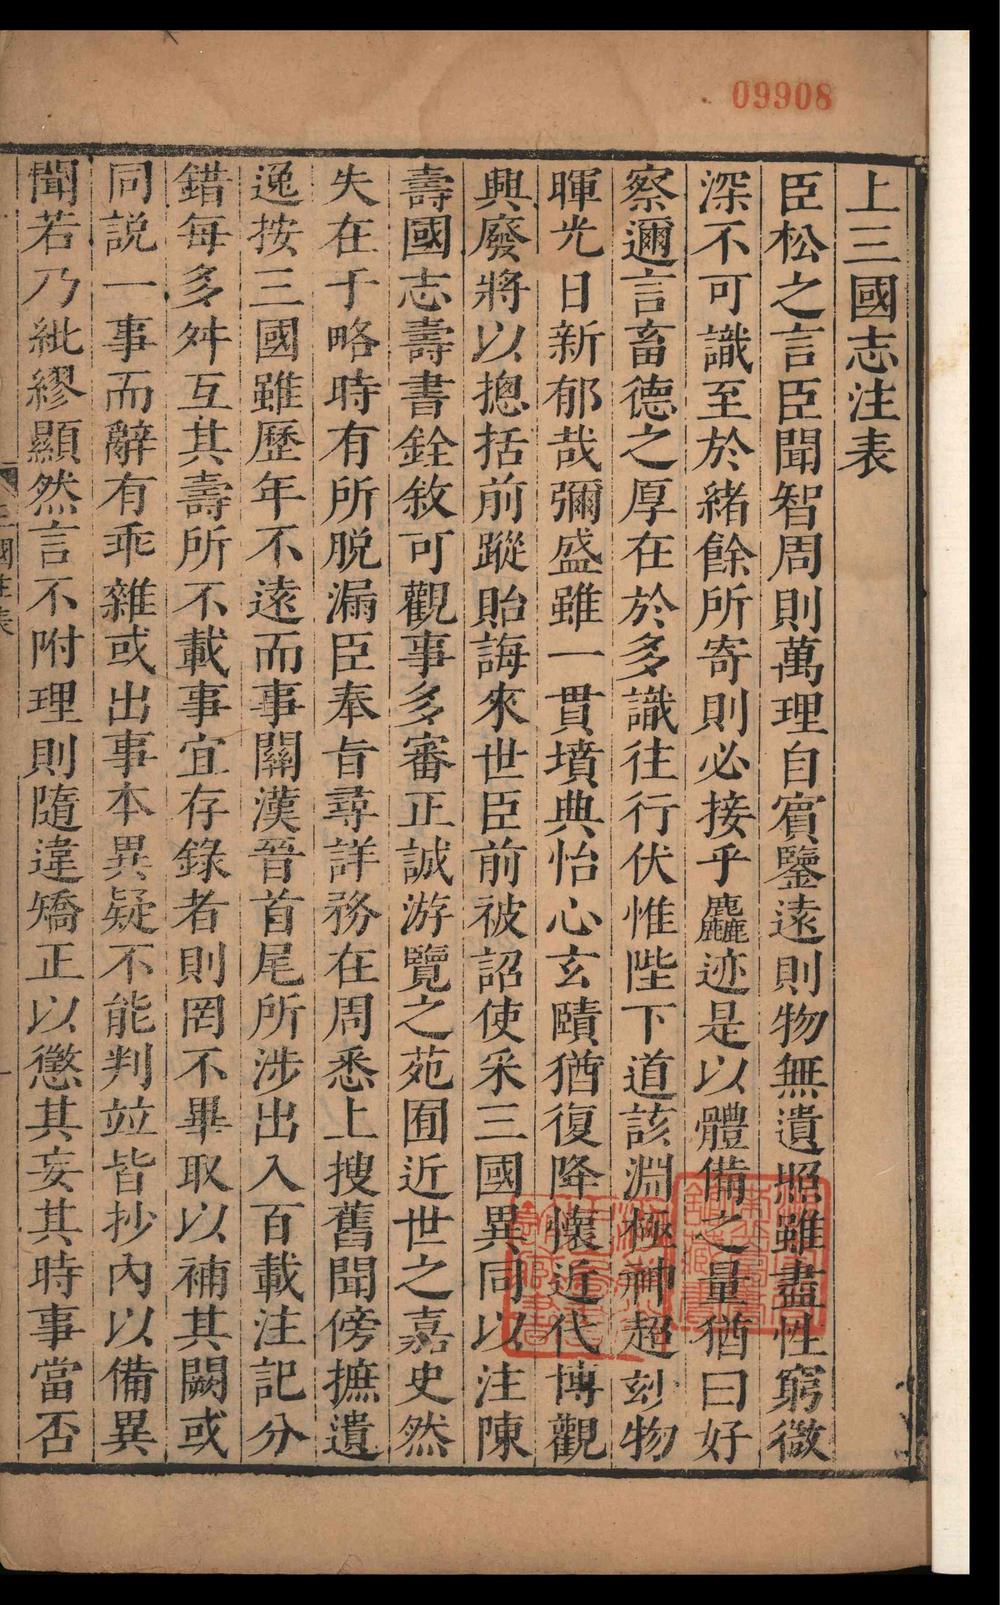 09908
上三國志注表
臣松之言臣聞智周則萬理自賓鑒遠則物無遺照雖盡性窮微
深不可識至於緒餘所寄則必接乎麤迹是以體備之量猶曰好
察邇言畜德之厚在於多識往行伏惟陛下道該淵極神超玅物
暉光日新郁哉彌盛雖一貫墳典怡心玄賾猶復降懷近代博觀
興廢將以摠括前蹤貽誨來世臣前被詔使采三國異同以注陳
壽國志壽書銓敘可觀事多審正誠游覽之苑囿近世之嘉史然
失在于略時有所脱漏臣奉旨尋詳務在周悉上搜舊聞傍摭遺
逸按三國雖歷年不遠而事關漢晉首尾所涉出入百載注記分
錯每多舛互其壽所不載事宜存錄者則罔不畢取以補其闕或
同説一事而辭有乖雜或出事本異疑不能判竝皆抄內以備異
聞若乃紕繆顯然言不附理則隨違矯正以懲其妄其時事當否
國注表